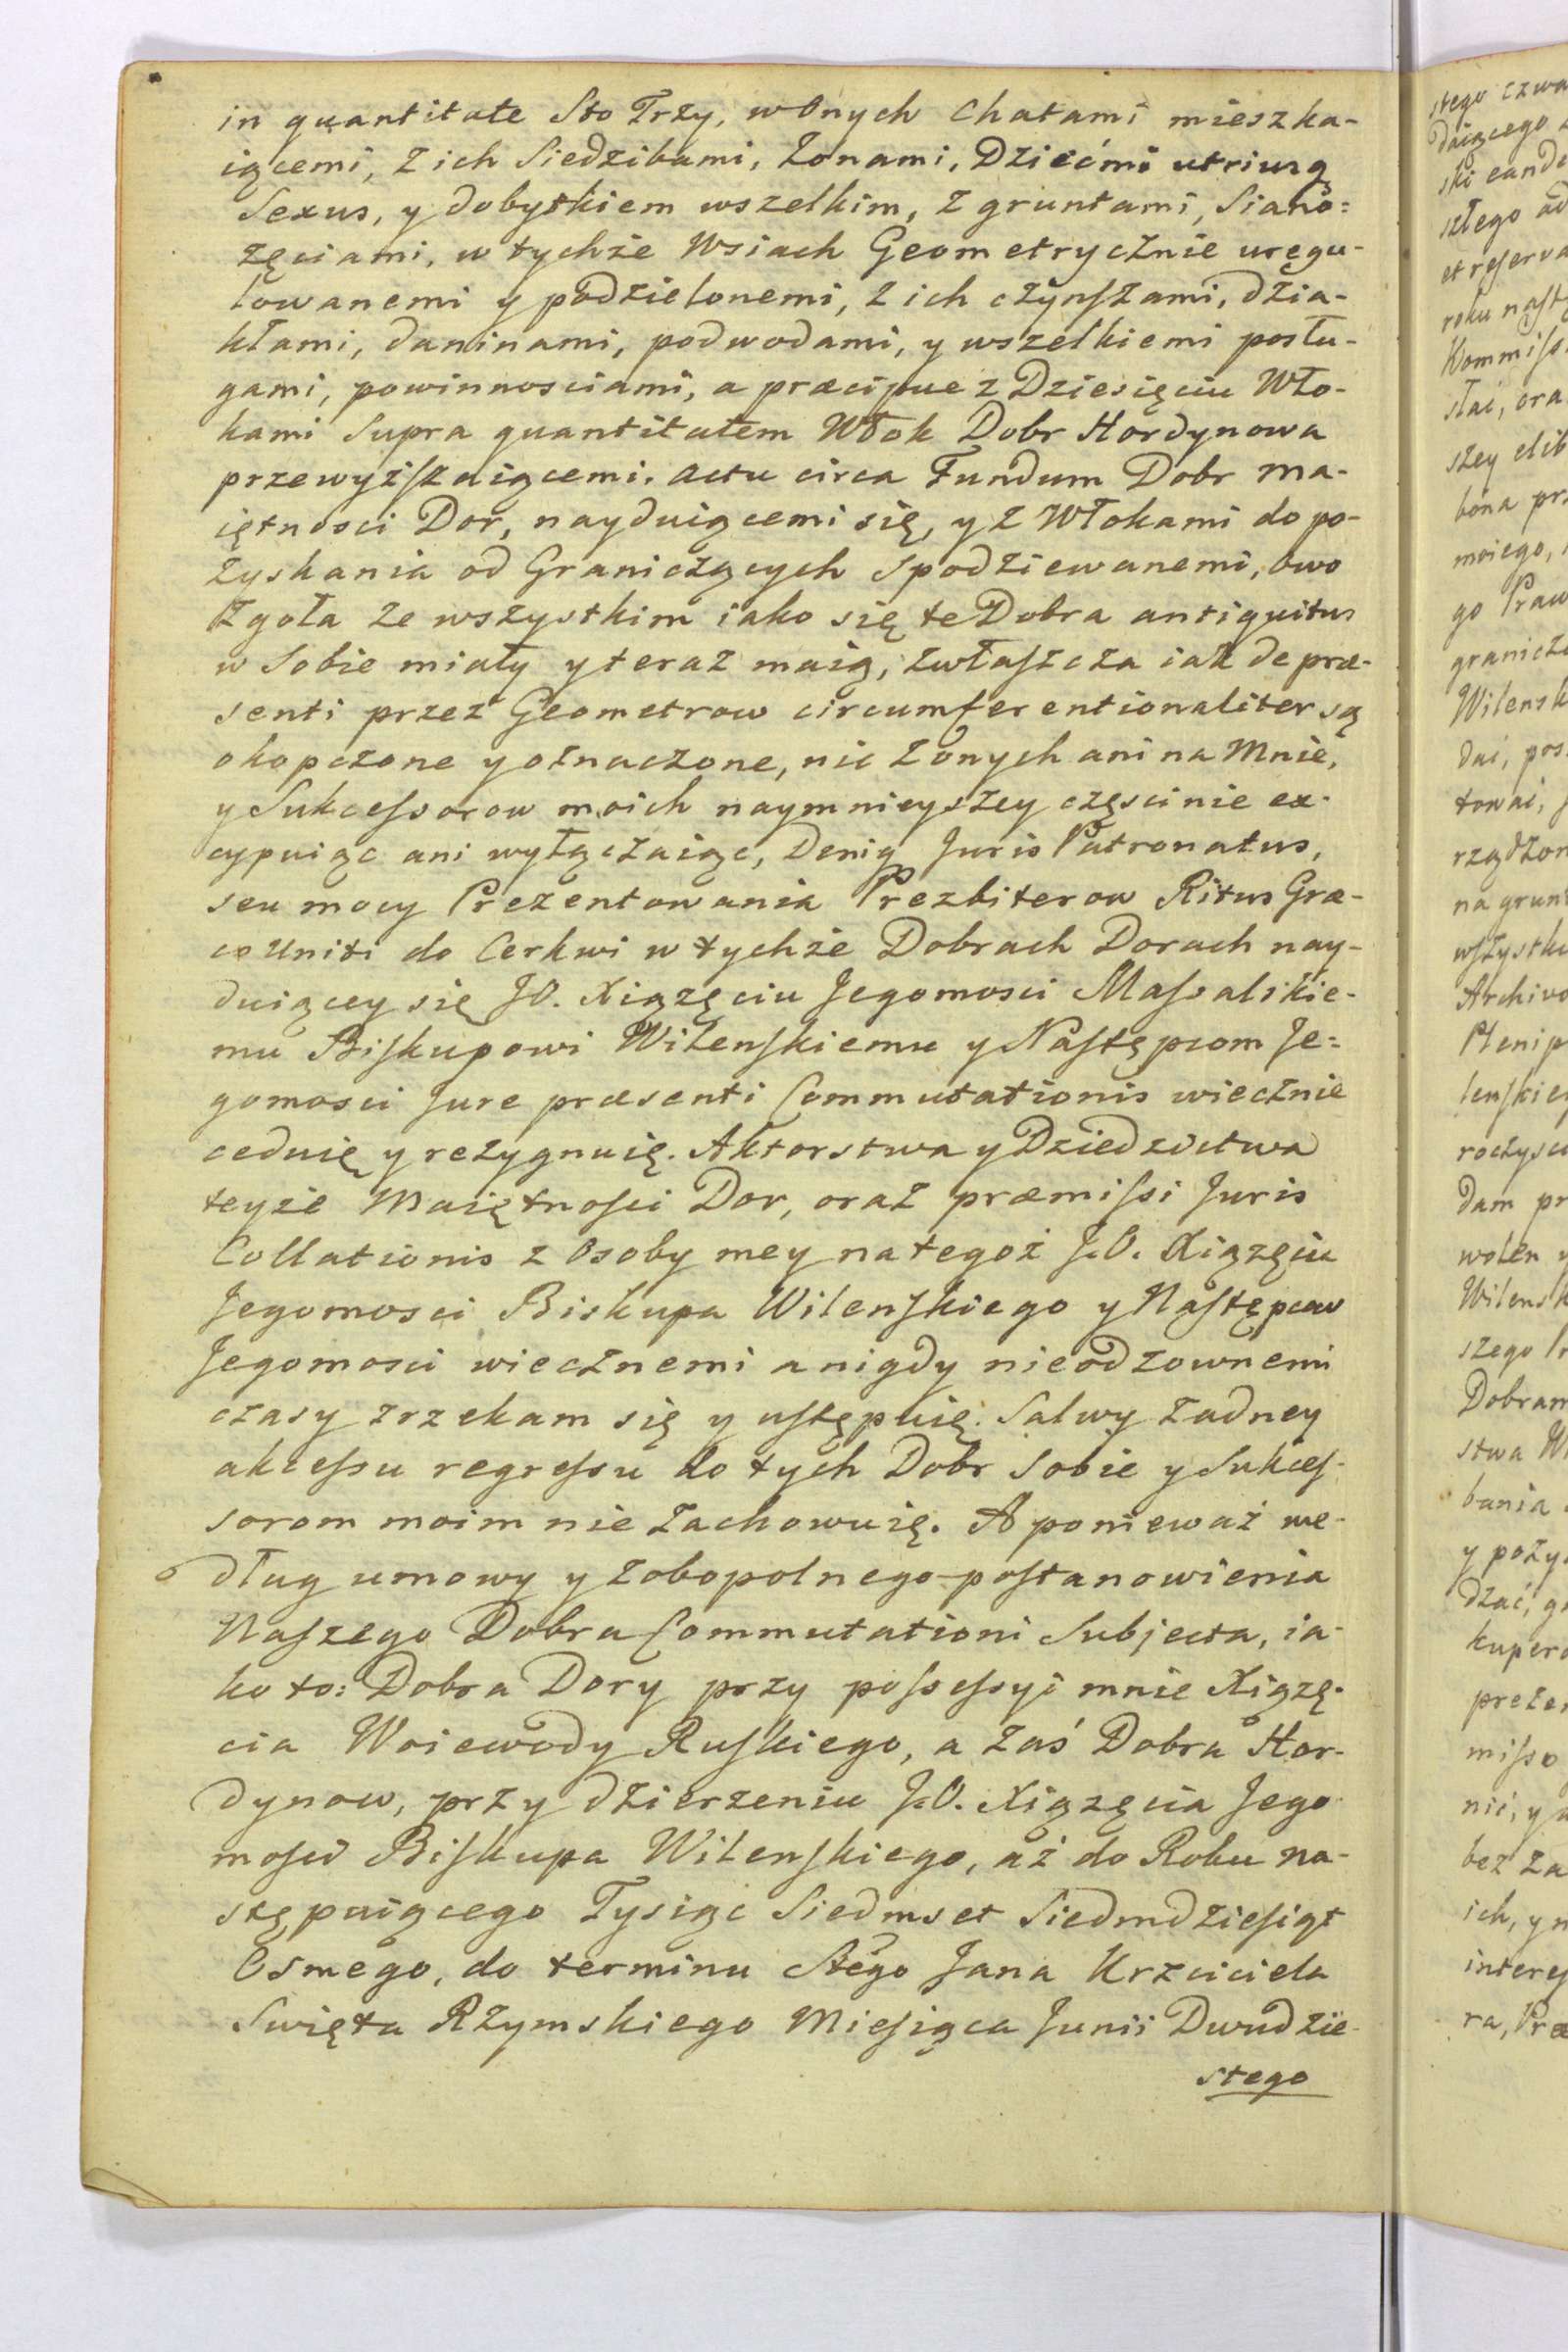 in quantitate Sto Trzy, w Onych Chatami mieszka-
iącemi, z ich Siedzibami, Zonami, Dziećmi utriusq
Sexus, y dobytkiem wszelkim, z gruntami, Siano=
zęciami, w tychże Wsiach Geometrycznie uregu-
lowanemi y podzielonemi, z ich czynszami, dzia-
kłami, daninami, podwodami, y wszelkiemi posłu-
gami, powinnosciami, a præcipue z Dziesięciu Wło-
kami Supra quantitatem Włok Dobr Hordynowa
przewyższaiącemi. actu circa Fundum Dobr Ma-
iętnosci Dor, nayduiącemi się, y z Włokami do po-
zyskania od Graniczących Spodziewanemi, owo
zgoła ze wszystkim iako się te Dobra antiquitus
w Sobie miały y teraz maią, zwłaszcza iak de præ-
senti przez Geometrow circumferentionaliter są
okopczone y oznaczone, nic z onych ani na Mnie,
y Sukcessorow moich naymnieyszey częsci nie ex-
cypuiąc ani wyłączaiąc, Deniq Juris Patronatus,
seu mocy Prezentowania Prezbiterow Ritus Græ-
co Uniti do Cerkwi w tychże Dobrach Dorach nay-
duiącey się JO. Xiązęciu Jegomosci Massalskie-
mu Biskupowi Wilenskiemu y Następcom Je=
gomosci Jure præsenti Commutationis wiecznie
ceduię y rezygnuię. Aktorstwa y Dziedzictwa
teyże Maiętnosci Dor, oraz præmissi Juris
Collationis z Osoby mey na tegoż J.O. Xiązęciu
Jegomosci Biskupa Wilenskiego y Następcow
Jegomosci wiecznemi a nigdy nieodzownemi
czasy zrzekam się y ustępuię. Salwy żadney
akcessu regressu do tych Dobr Sobie y Sukces-
sorom moim nie zachowuię. A ponieważ we-
dług umowy y zobopolnego postanowienia
Naszego Dobra Commutationi Subjecta, ia-
ko to: Dobra Dory przy possessyi mnie Xiązę-
cia Woiewody Ruskiego, a zaś Dobra Hor-
dynow, przy dzierzeniu J.O. Xiązęcia Jego-
mosci Biskupa Wilenskiego, aż do Roku na-
stępuiącego Tysiąc Siedmset Siedmdziesiąt
Osmego, do terminu Stego Jana Krzciciela
Swięta Rzymskiego Miesiąca Junii Dwudzie-
stego
stego czwa
daiącego
szłego
et reserva
roku nast
Kommiss
stać, ora
szey elib
bona pr
moiego,
go Praw
granicz
Wilensk
dać, pos
towai,
rządzon
na grun
wszystki
Archivo
Plenip
lenskie
roczysc
dam pr
wolen y
Wilensk
szego Pr
Dobram
stwa Wi
bania
y pozy
dzać, g
kupero
preze
misso
nić, y
bez za
ich, y n
interes
ra, Præ